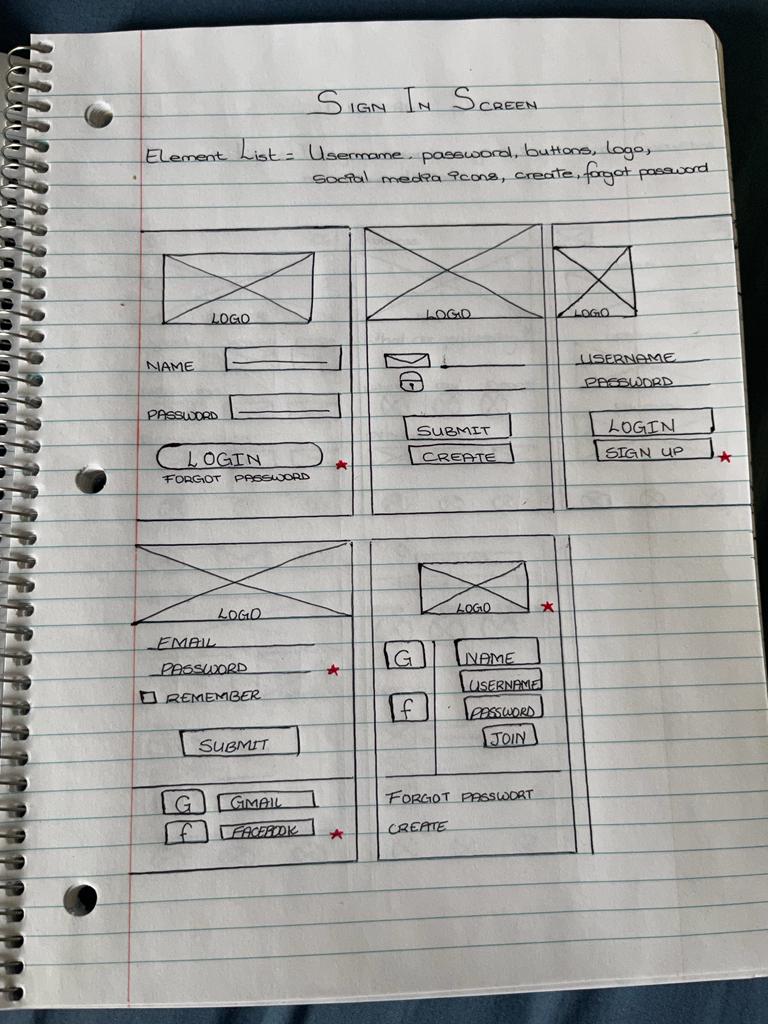 SIGN IN SCREEN
ELEMENT LIST = Username, password, buttons, logo,
social media icons, create, forgot password
LOGO
NAME
PASSWORD
LOGIN
FORGOT PASSWORD
LOGO
SUBMIT
CREATE
LOGO
USERNAME
PASSWORD
LOGIN
SIGN UP
LOGO
EMAIL
PASSWORD
REMEMBER
SUBMIT
G GMAIL
f FACEBOOK
LOGO
G
f
NAME
USERNAME
PASSWORD
JOIN
FORGOT PASSWORT
CREATE